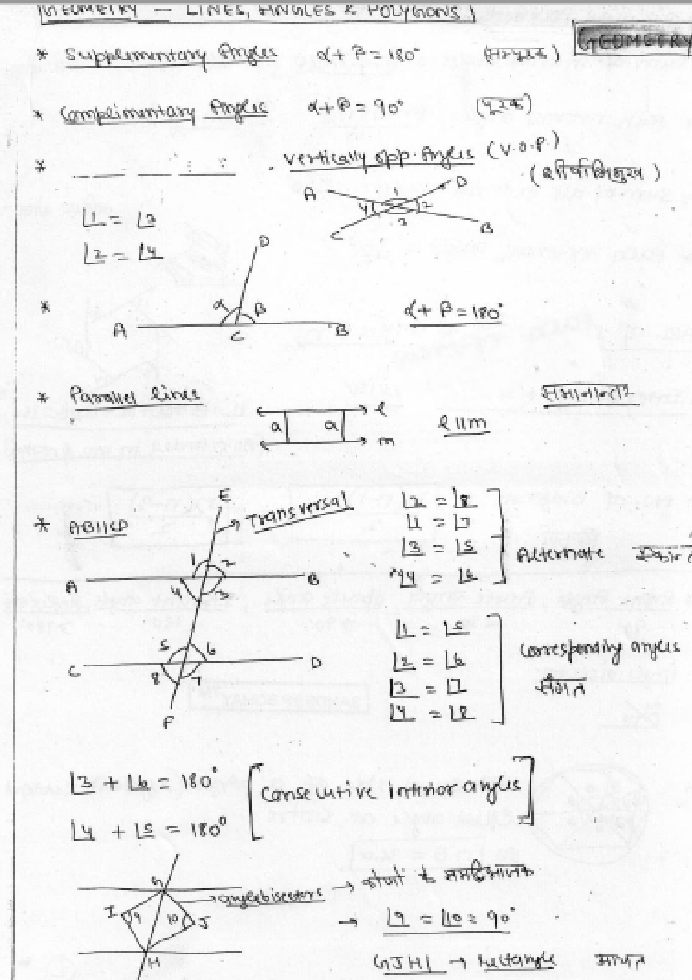 GEOMETRY — LINES, ANGLES & POLYGONS
GEOMETRY
* Supplementary Angles α+β=180° (सम्पूरक)
* Complimentary Angles α+β=90° (पूरक)
* Vertically opp. Angles (V.O.P.)
(शीर्षाभिमुख)
A D 1 4 2 3 C B
∠1 = ∠3
∠2 = ∠4
D
* α β A C B α+β=180°
* Parallel lines समानान्तर
a a l m l||m
* AB||CD
E → Transversal
A 1 2 4 3 B
C 5 6 8 7 D
F
∠2 = ∠8
∠1 = ∠7
∠3 = ∠5
∠4 = ∠6
Alternate
∠1 = ∠5
∠2 = ∠6
∠3 = ∠7
∠4 = ∠8
Corresponding angles
संगत
∠3 + ∠6 = 180°
∠4 + ∠5 = 180°
[Consecutive interior angles]
G → anglebisectors → कोणों के समद्विभाजक
I 9 10 J → ∠9 = ∠10 = 90°
H GJHI → Rectangle आयत